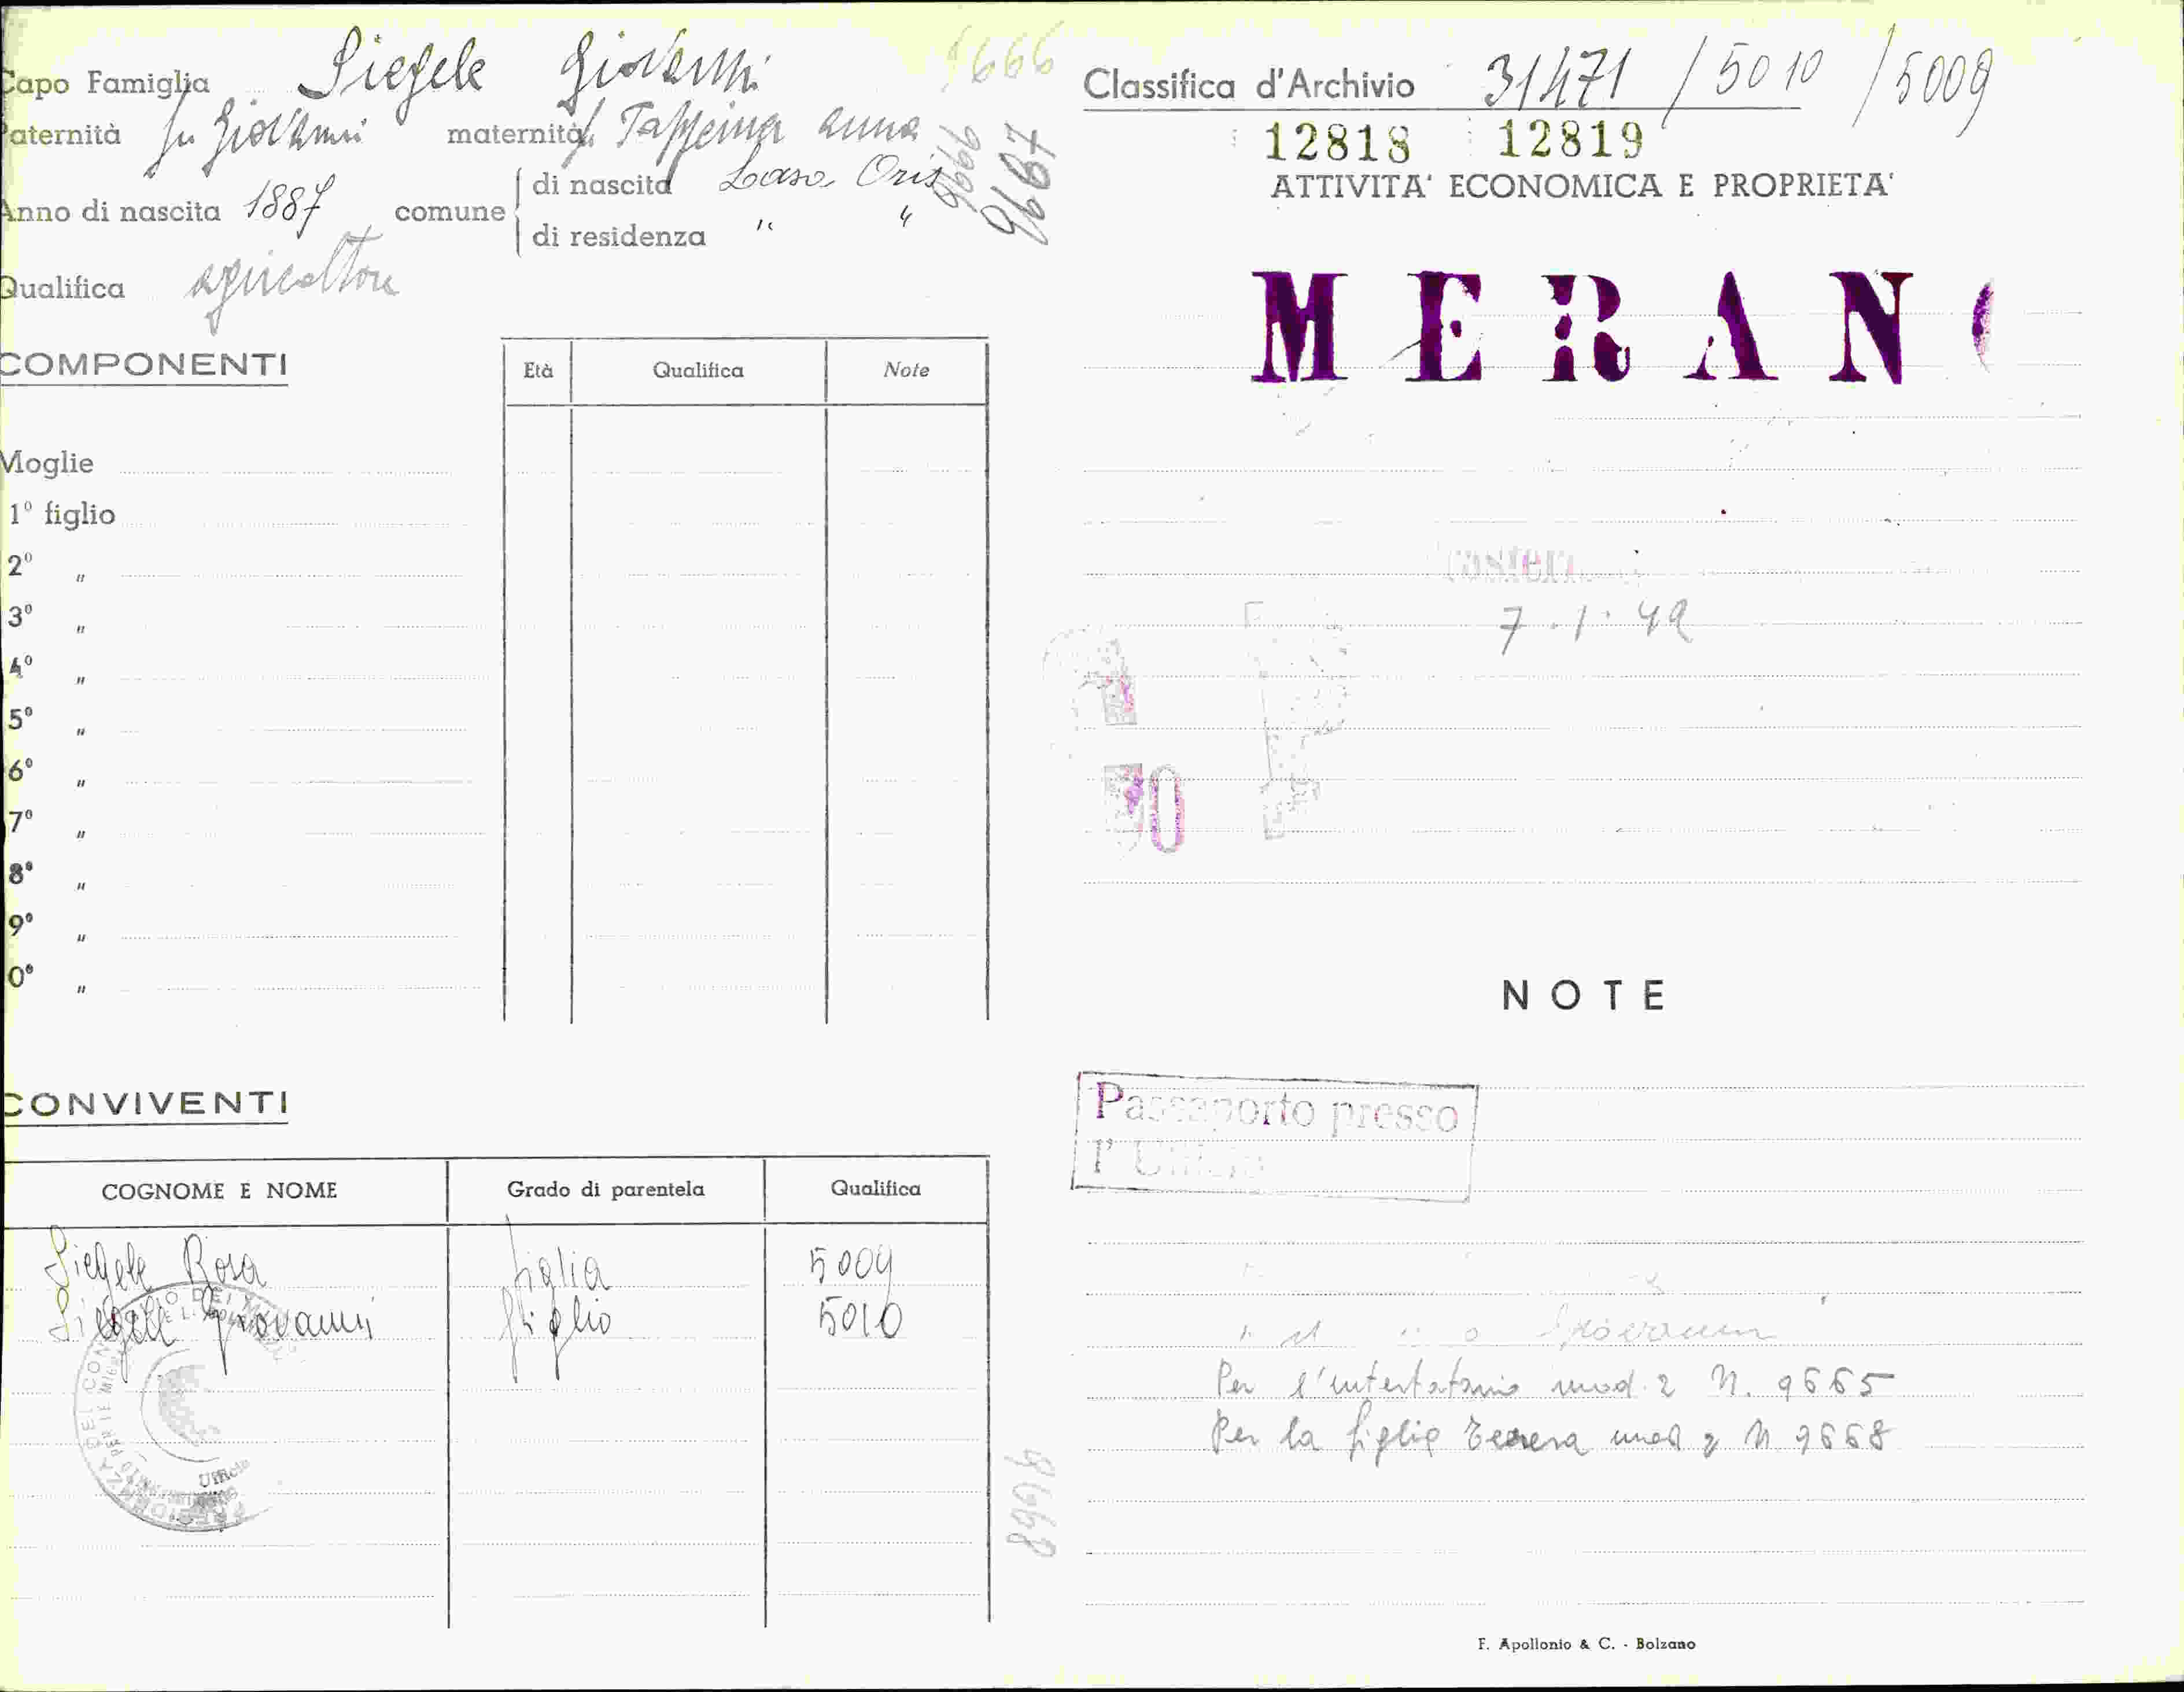 Capo Famiglia Siegele Giovanni
Paternità fu Giovanni maternità Tappeiner Anna
Anno di nascita 1887 comune di nascita Lasa Oris
di residenza " "
Qualifica agricoltore
9666
9667
COMPONENTI
Età Qualifica Note
Moglie
1º figlio
2º "
3º "
4º "
5º "
6º "
7º "
8º "
9º "
0º "
CONVIVENTI
COGNOME E NOME Grado di parentela Qualifica
Siegele Rosa figlia 5009
Siegele Giovanni figlio 5010
Ufficio
9668
Classifica d'Archivio 31471 / 5010 / 5009
12818 12819
ATTIVITA' ECONOMICA E PROPRIETA'
MERANO
7.1.42
NOTE
Passaporto presso
l'Ufficio
Giovanni
Per l'intestatario mod. 2 N. 9665
Per la figlia mod 2 N 9668
F. Apollonio & C. - Bolzano